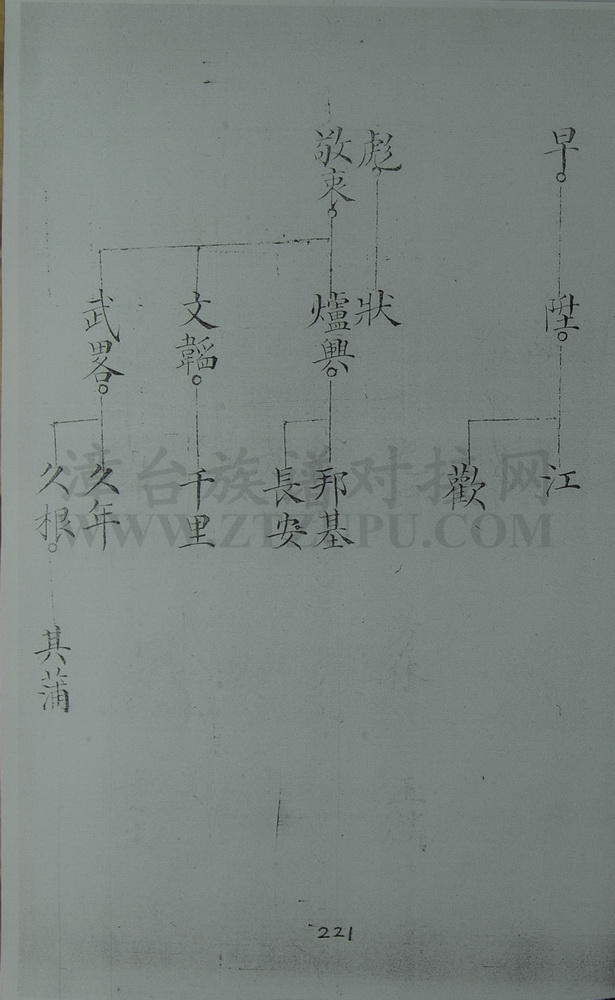 早
彪
敬衷
陞
狀
爐興
文韜
武畧
江
歡
邦基
長安
千里
久年
久根
其蒲
漳台族谱对接网
WWW.ZTZUPU.COM
221